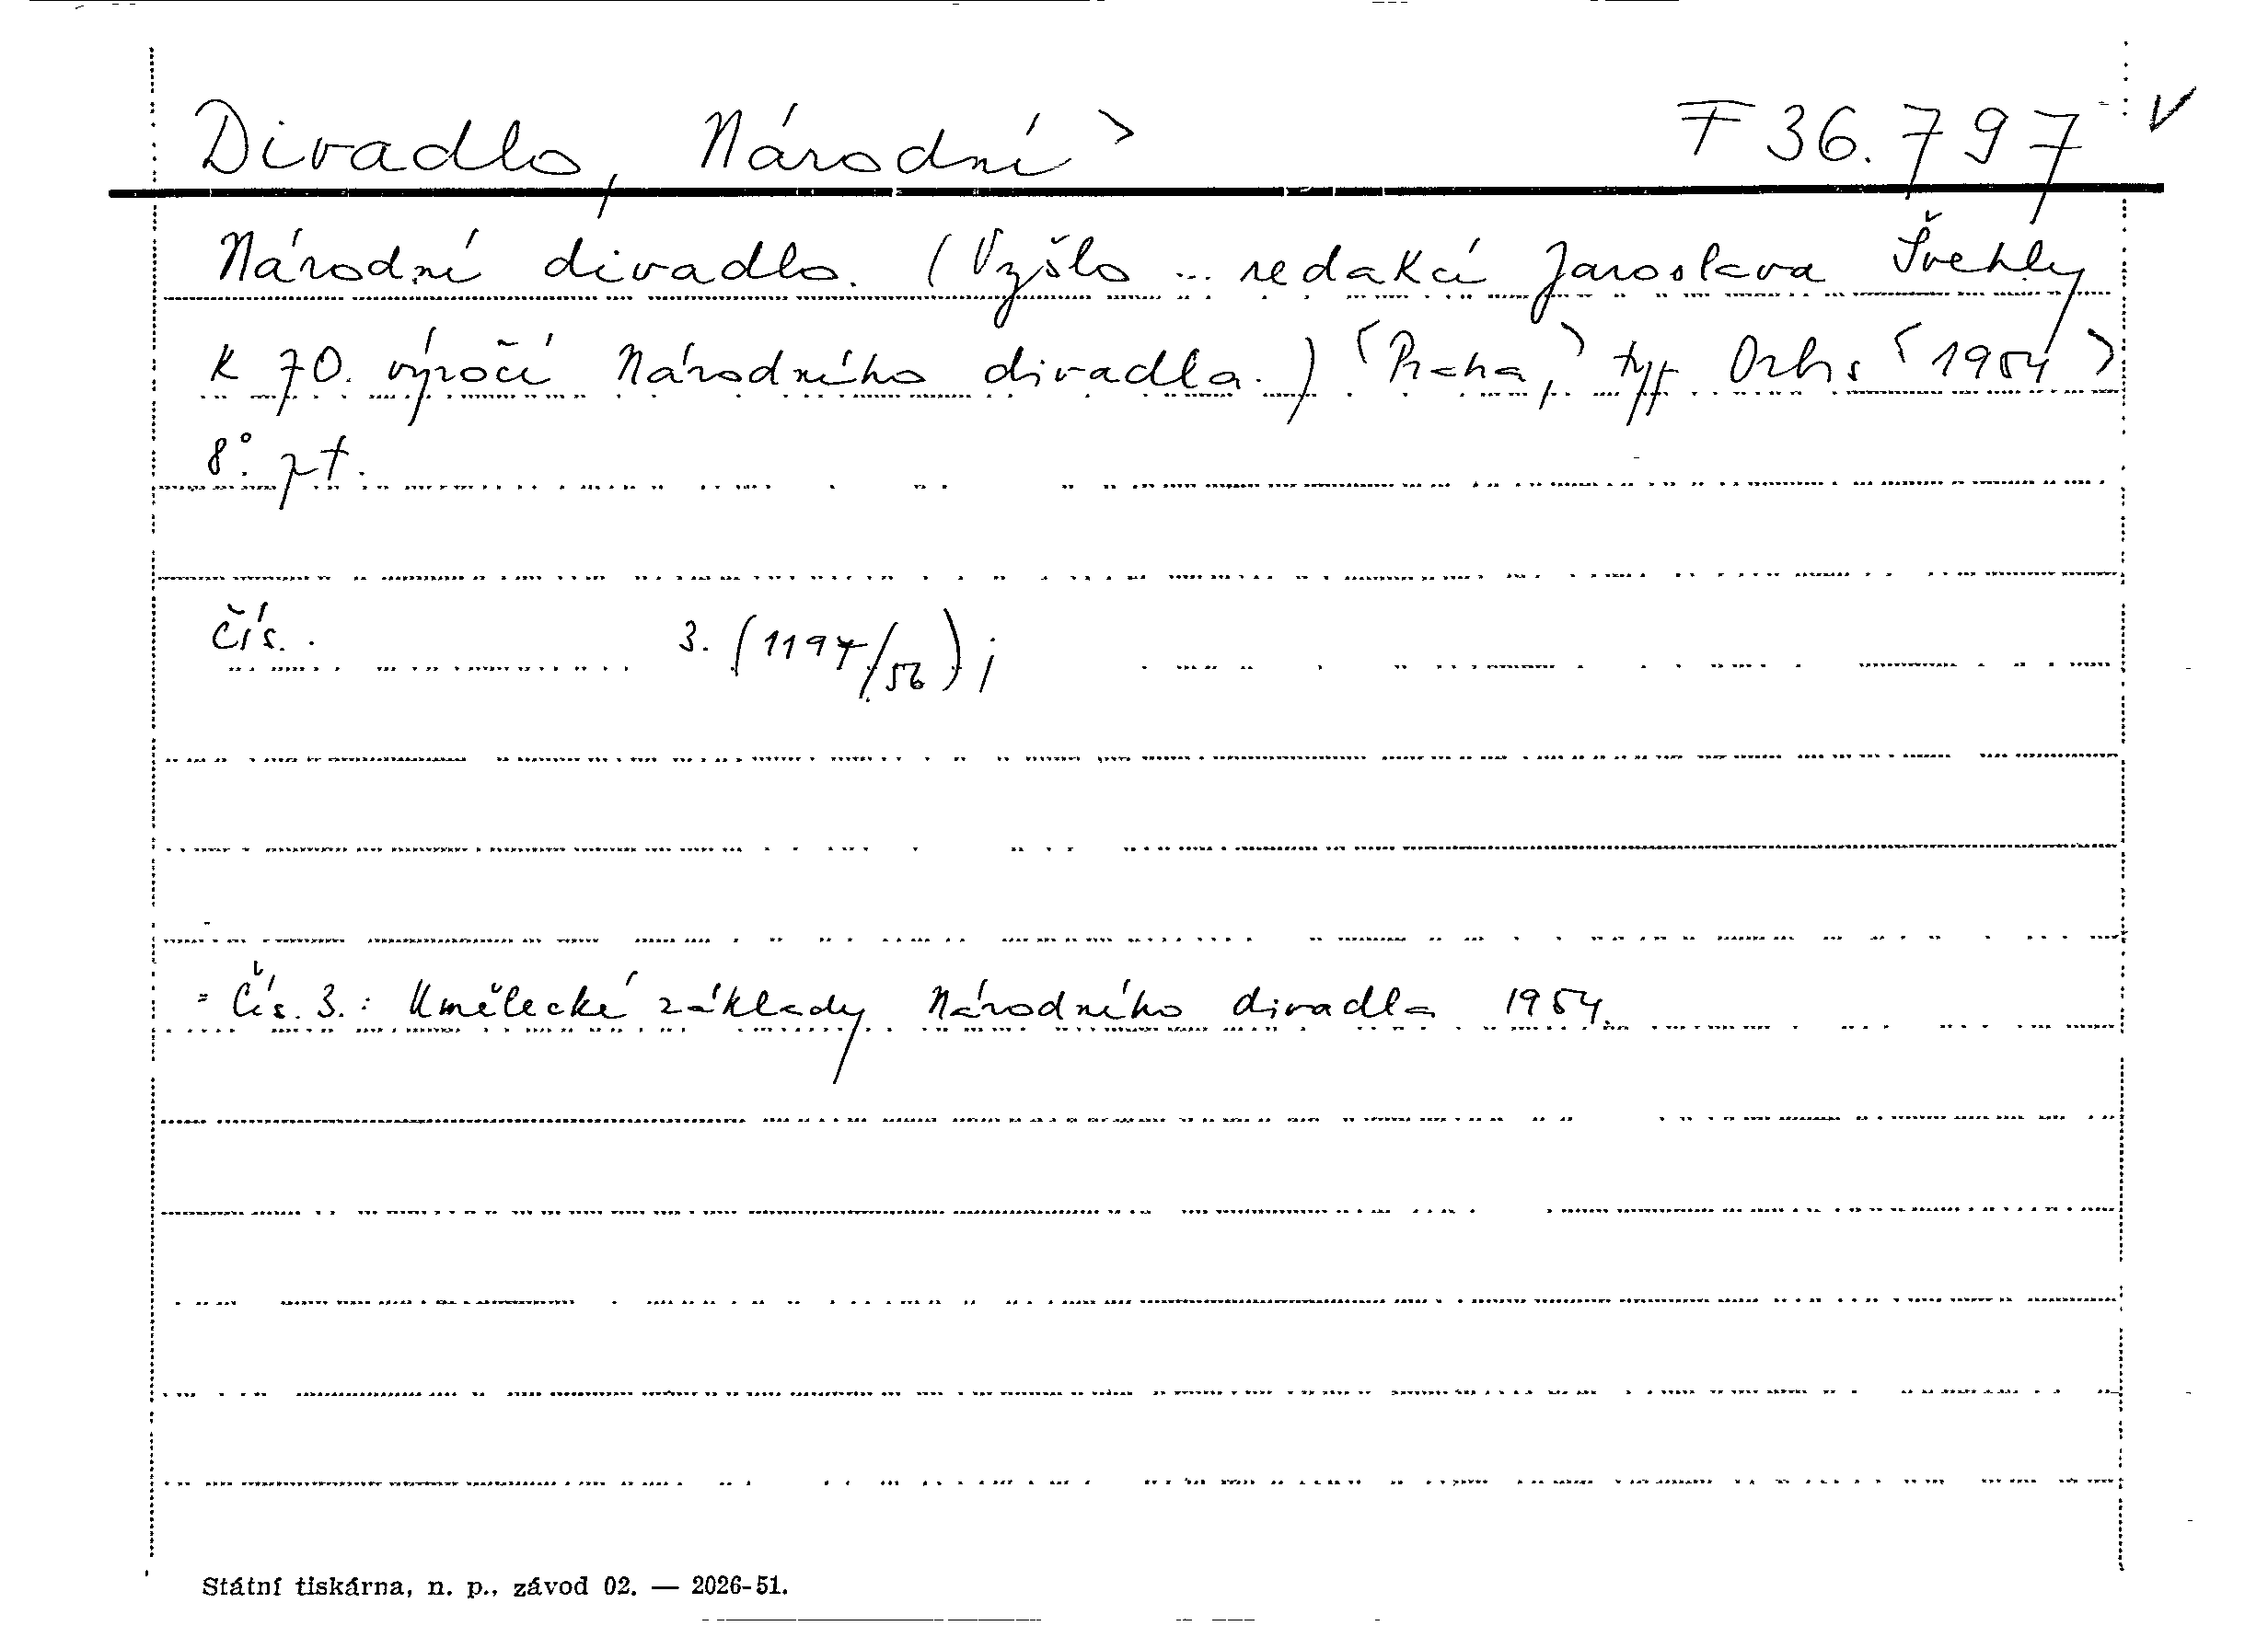 Divadlo, Národní > F 36.797 V
Národní divadlo. (Vyšlo ... redakcí Jaroslava Švehly
K 70. výročí Národního divadla.) <Praha,> typ Orbis <1954>
8°. pt.
Čís. . 3. (1197/56) j
= Čís. 3.: Umělecké základy Národního divadla 1954.
Státní tiskárna, n. p., závod 02. — 2026-51.